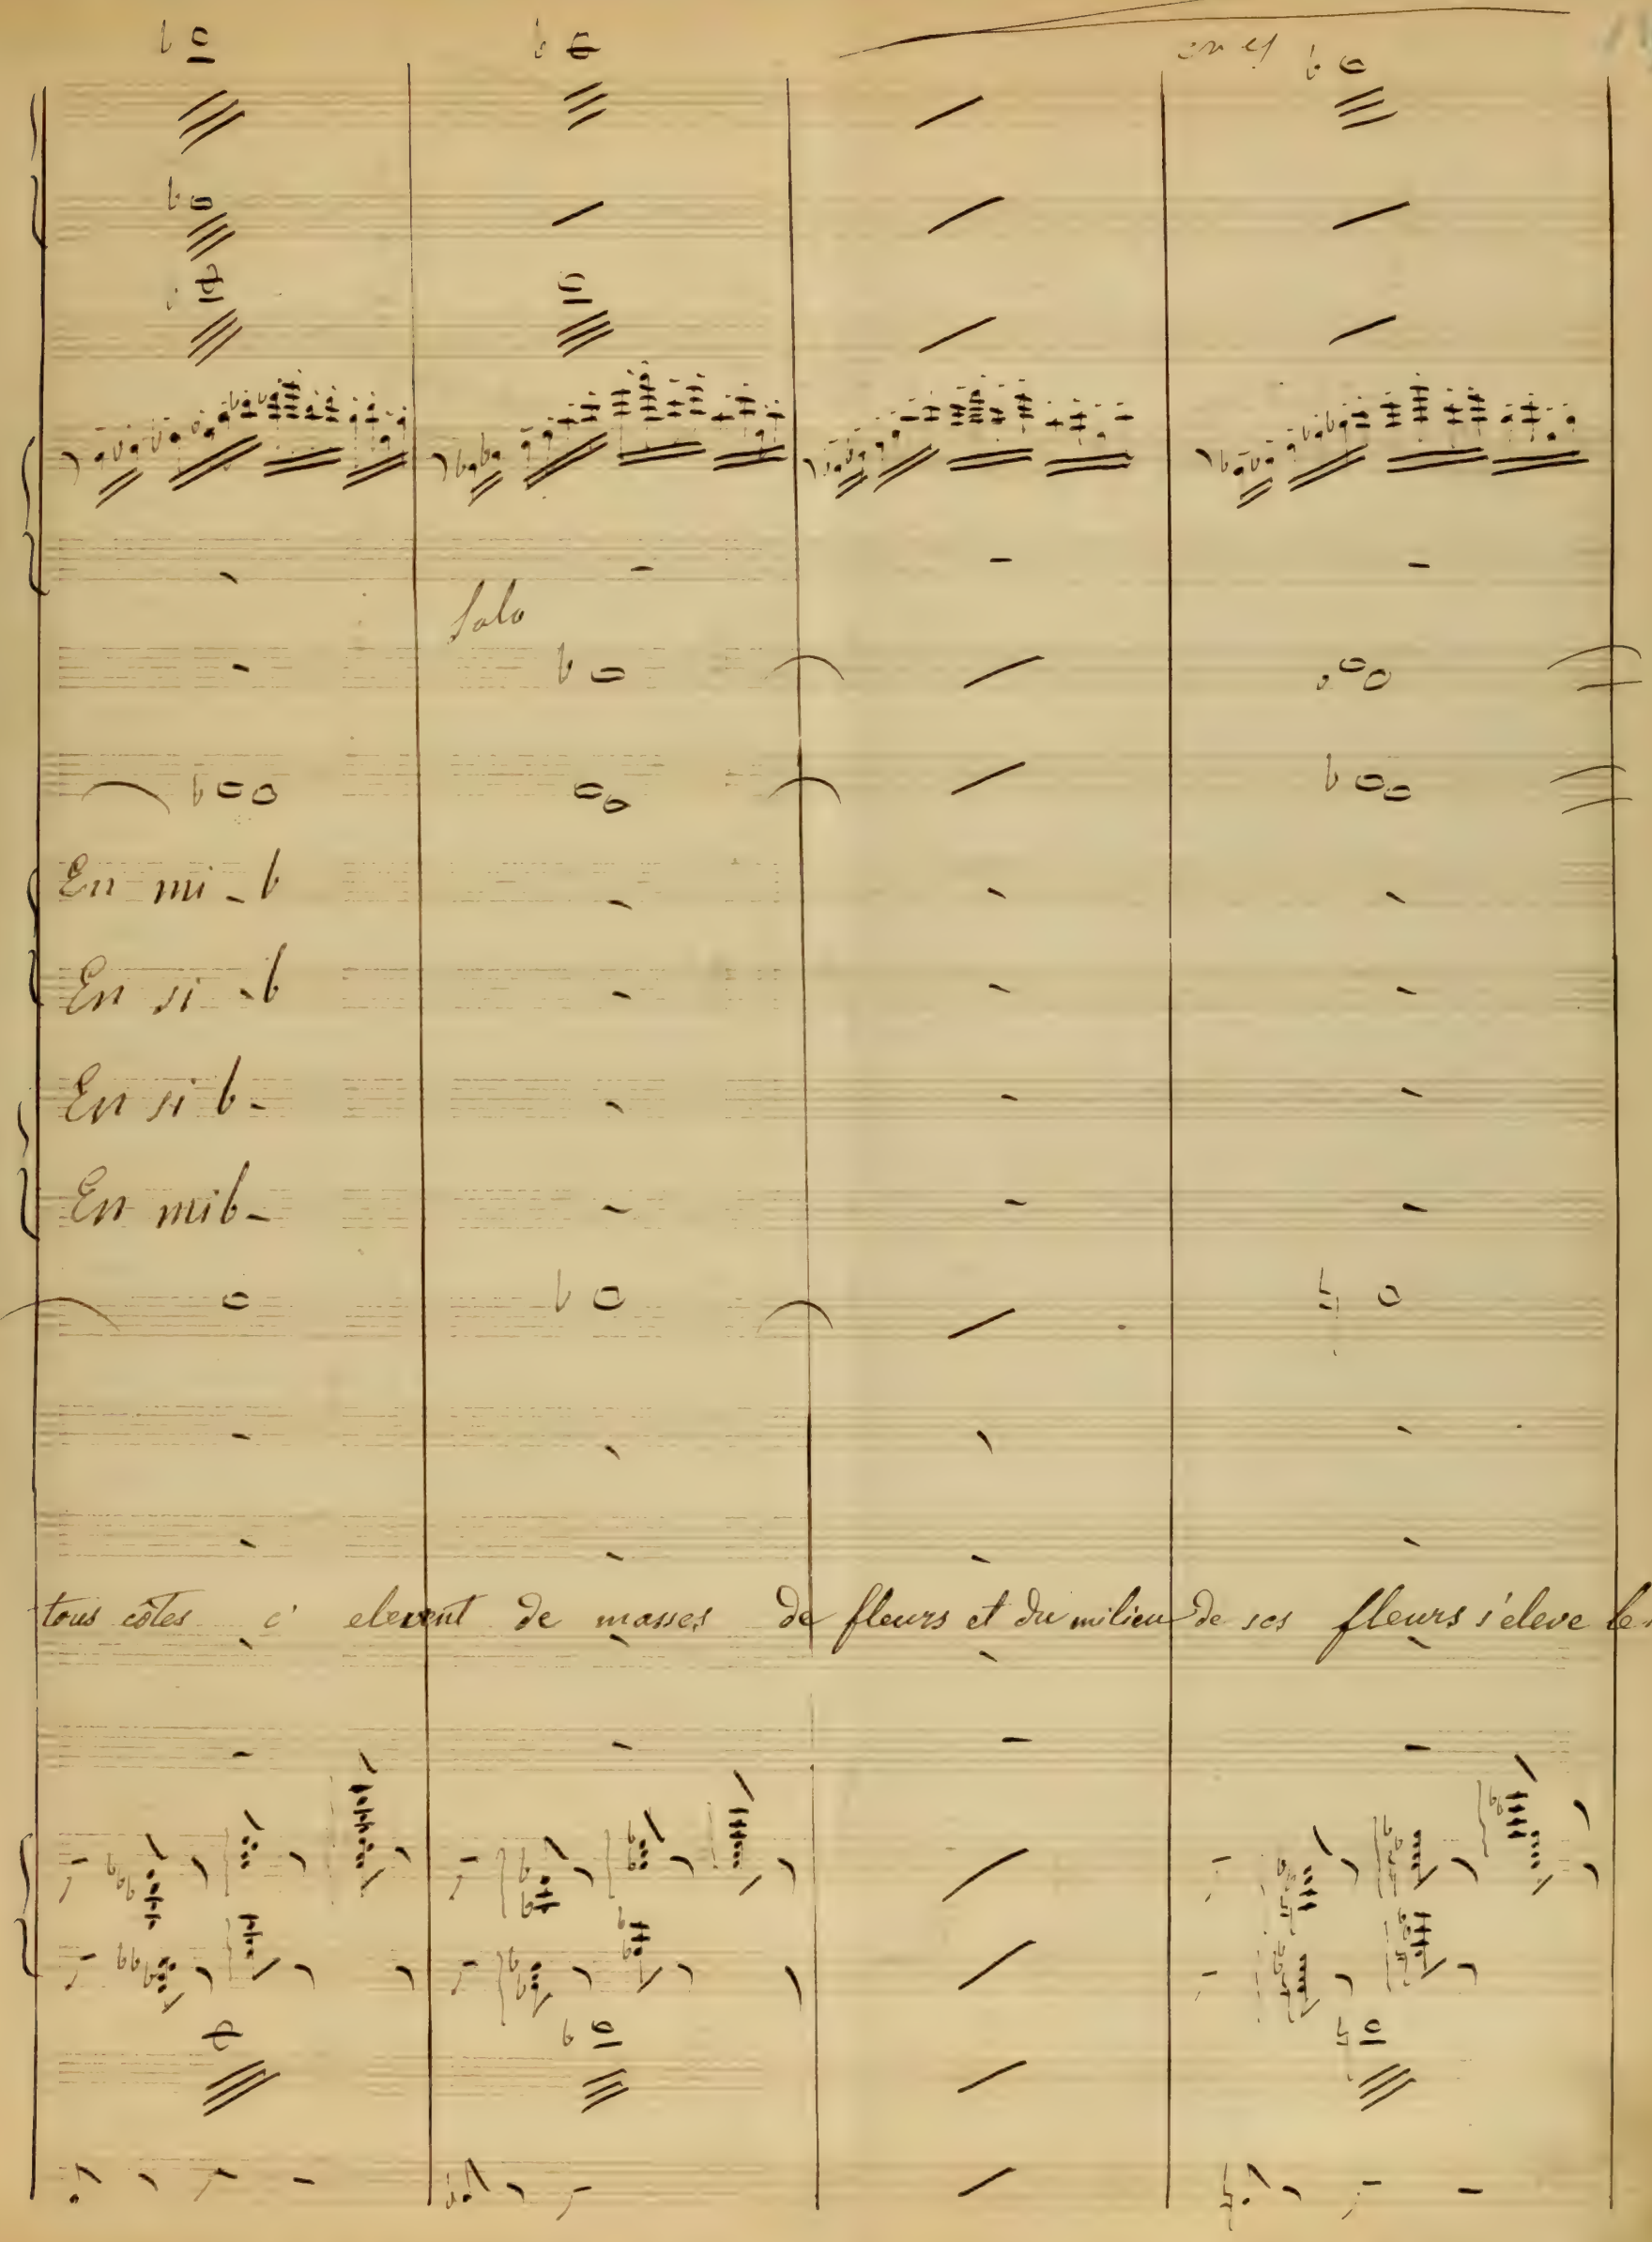 Solo
En mi b
En si b
En si b
En mi b
tous côtes c' elevent de masses de fleurs et du milieu de ses fleurs s'eleve le